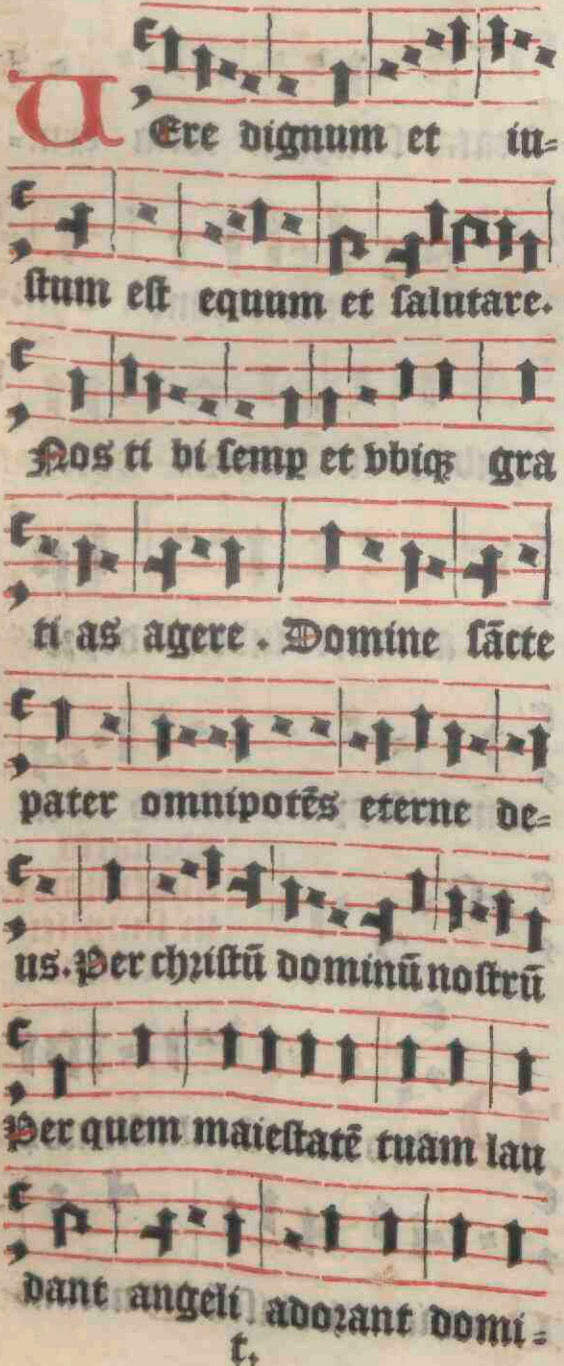 UEre dignum et iu=
stum est equum et salutare.
Nos ti bi semꝑ et vbiqꝫ gra
ti as agere . Domine sācte
pater omnipotēs eterne de=
us. Per christū dominū nostrū
Per quem maiestatē tuam lau
dant angeli adorant domi=
t.